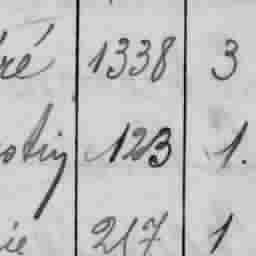 ré 1338 3
otin 123 1.
ie 217 1